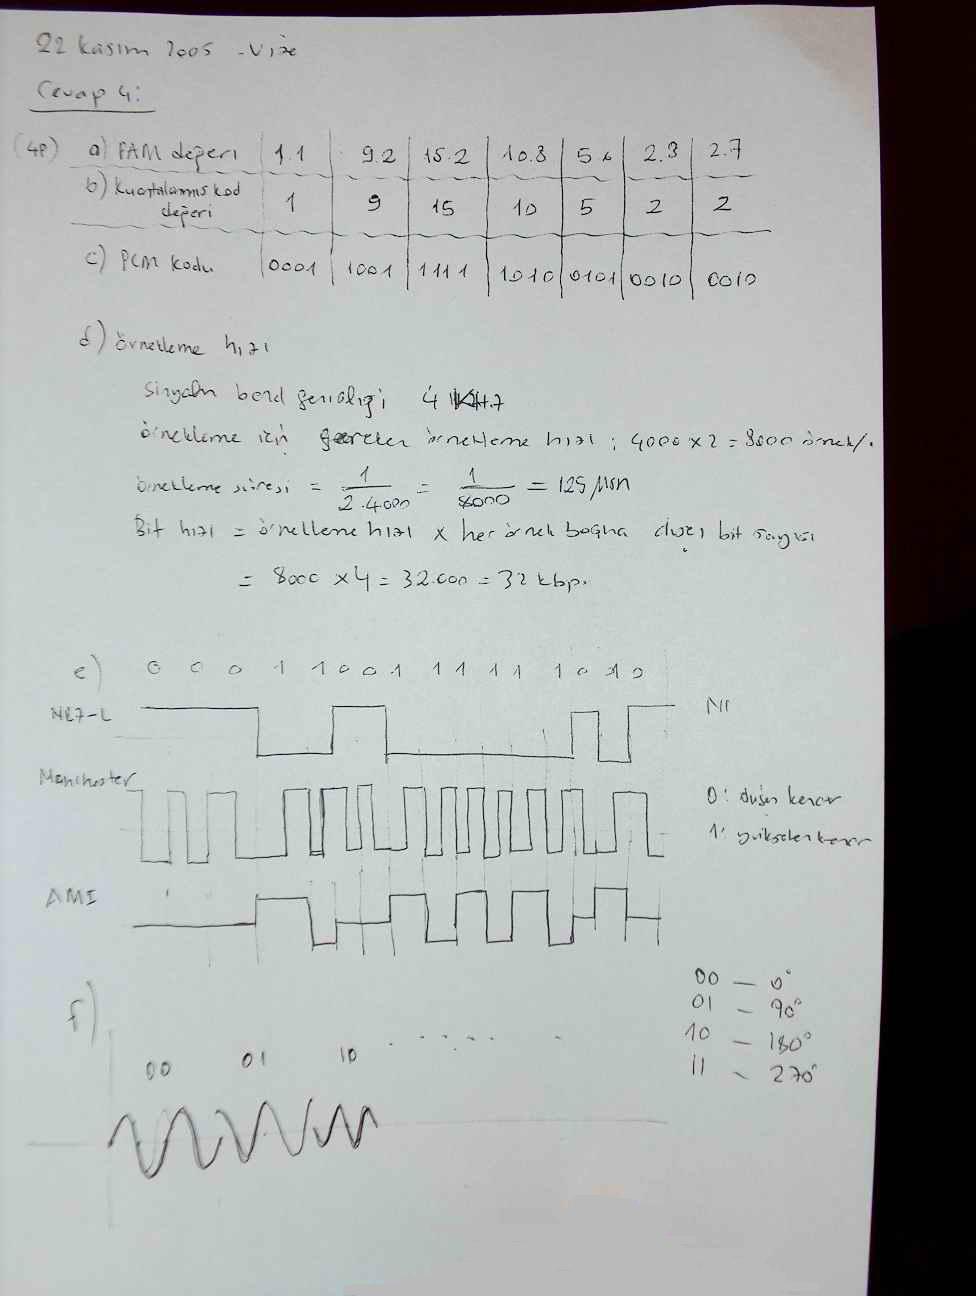 22 Kasım 2005 - Vize
Cevap 4:
(4P) a) PAM değeri 1.1 9.2 15.2 10.8 5 2.8 2.7
b) Kuantalamış kod değeri 1 9 15 10 5 2 2
c) PCM kodu 0001 1001 1111 1010 0101 0010 0010
d) örnekleme hızı
Sinyalin band genişliği 4 KHz
örnekleme için gereken örnekleme hızı ; 4000 x 2 = 8000 örnek/.
örnekleme süresi = 1 / 2.4000 = 1 / 8000 = 125 µsn
Bit hızı = örnekleme hızı x her örnek başına düşen bit sayısı
= 8000 x 4 = 32.000 = 32 kbp.
e) 0 0 0 1 1 0 0 1 1 1 1 1 1 0 1 0
NRZ-L
Manchester 0 : düşen kenar
1 : yükselen kenar
AMI
f) 00 — 0°
01 — 90°
10 — 180°
11 — 270°
00 01 10 . . . . . . .